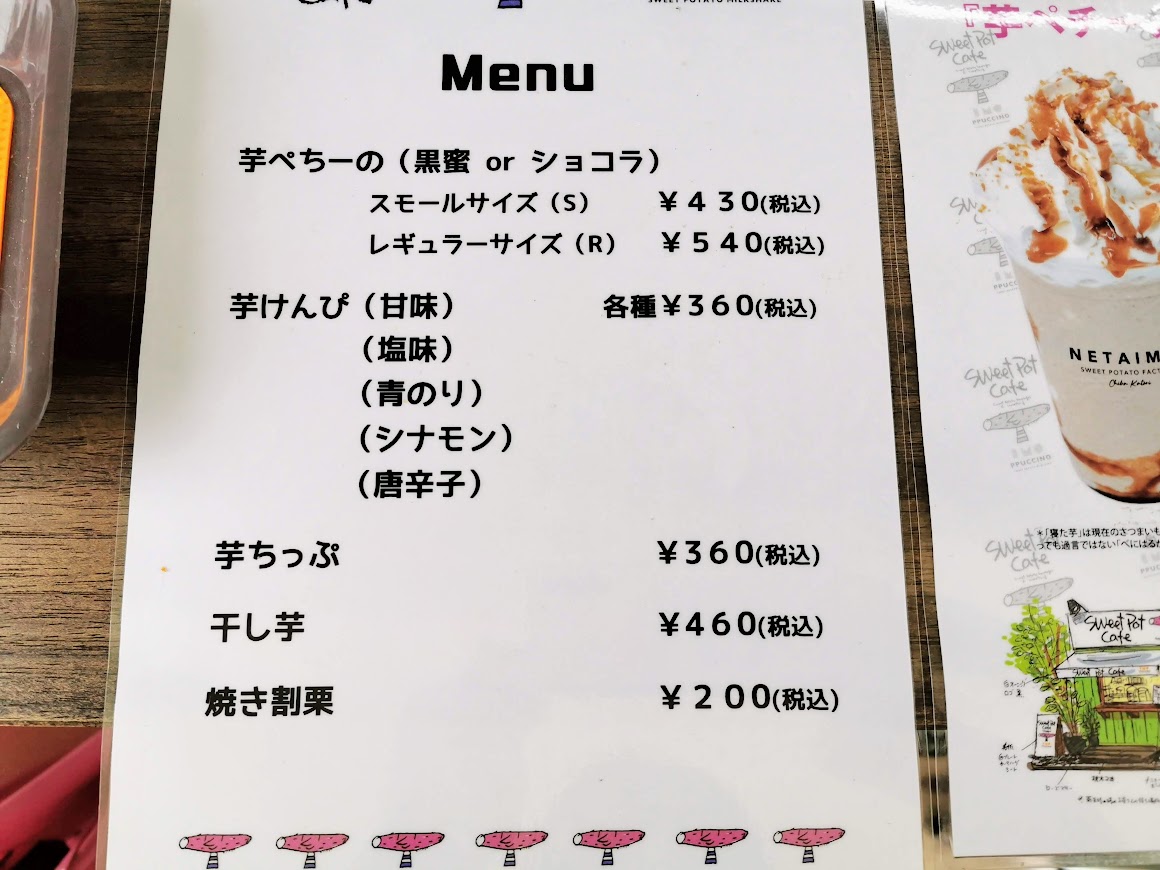 SWEET POTATO MILKSHAKE
Menu
芋ぺちーの（黒蜜 or ショコラ）
スモールサイズ（S） ￥４３０(税込)
レギュラーサイズ（R） ￥５４０(税込)
芋けんぴ（甘味） 各種￥３６０(税込)
（塩味）
（青のり）
（シナモン）
（唐辛子）
芋ちっぷ ￥３６０(税込)
干し芋 ￥４６０(税込)
焼き割栗 ￥２００(税込)
『芋ペチ
Sweet Pot
Cafe
PPUCCINO
NETAIM
SWEET POTATO FACT
Sweet Pot
Cafe
PPUCCINO
＊「寝た芋」は現在のさつまいも
っても過言ではない「べにはるか
Sweet Pot
Cafe
Sweet Pot Cafe